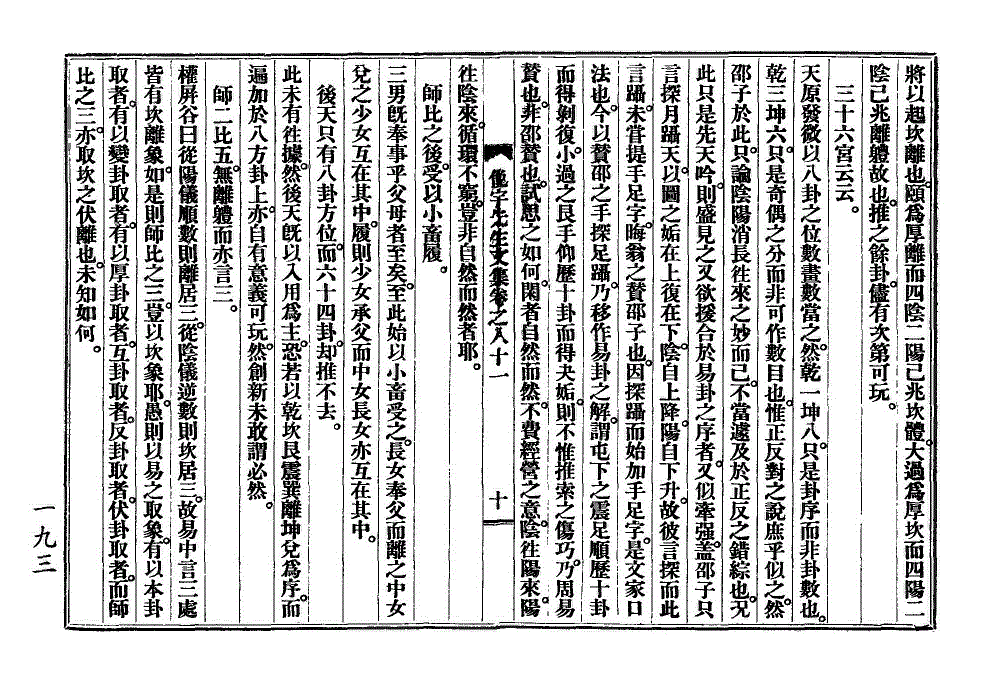 將以起坎離也頤爲厚離而四陰二陽已兆坎體大過爲厚坎而四陽二
陰已兆離體故也推之餘卦儘有次第可玩
三十六宮云云
天原發微以八卦之位數畫數當之然乾一坤八只是卦序而非卦數也
乾三坤六只是奇偶之分而非可作數目也惟正反對之說庶乎似之然
邵子於此只論陰陽消長往來之妙而已不當遽及於正反之錯綜也况
此只是先天吟則盛見之又欲援合於易卦之序者又似牽强盖邵子只
言探月躡天以圖之姤在上復在下陰自上降陽自下升故彼言探而此
言躡未甞提手足字晦翁之贊邵子也因探躡而始加手足字是文家口
法也今以贊邵之手探足躡乃移作易卦之解謂屯下之震足順歷十卦
而得剝復小過之艮手仰歷十卦而得夬姤則不惟推索之傷巧乃周易
贊也非邵贊也試思之如何閑者自然而然不費經營之意陰往陽來陽
往陰來循環不窮豈非自然而然者耶
師比之後受以小畜履
三男旣奉事乎父母者至矣至此始以小畜受之長女奉父而離之中女
兌之少女互在其中履則少女承父而中女長女亦互在其中
後天只有八卦方位而六十四卦却推不去
此未有往據然後天旣以入用爲主恐若以乾坎艮震巽離坤兌爲序而
遍加於八方卦上亦自有意義可玩然創新未敢謂必然
師二比五無離體而亦言三
權屛谷曰從陽儀順數則離居三從陰儀逆數則坎居三故易中言三處
皆有坎離象如是則師比之三豈以坎象耶愚則以易之取象有以本卦
取者有以變卦取者有以厚卦取者互卦取者反卦取者伏卦取者而師
比之三亦取坎之伏離也未知如何
先生文集卷之八十一
十
一九三